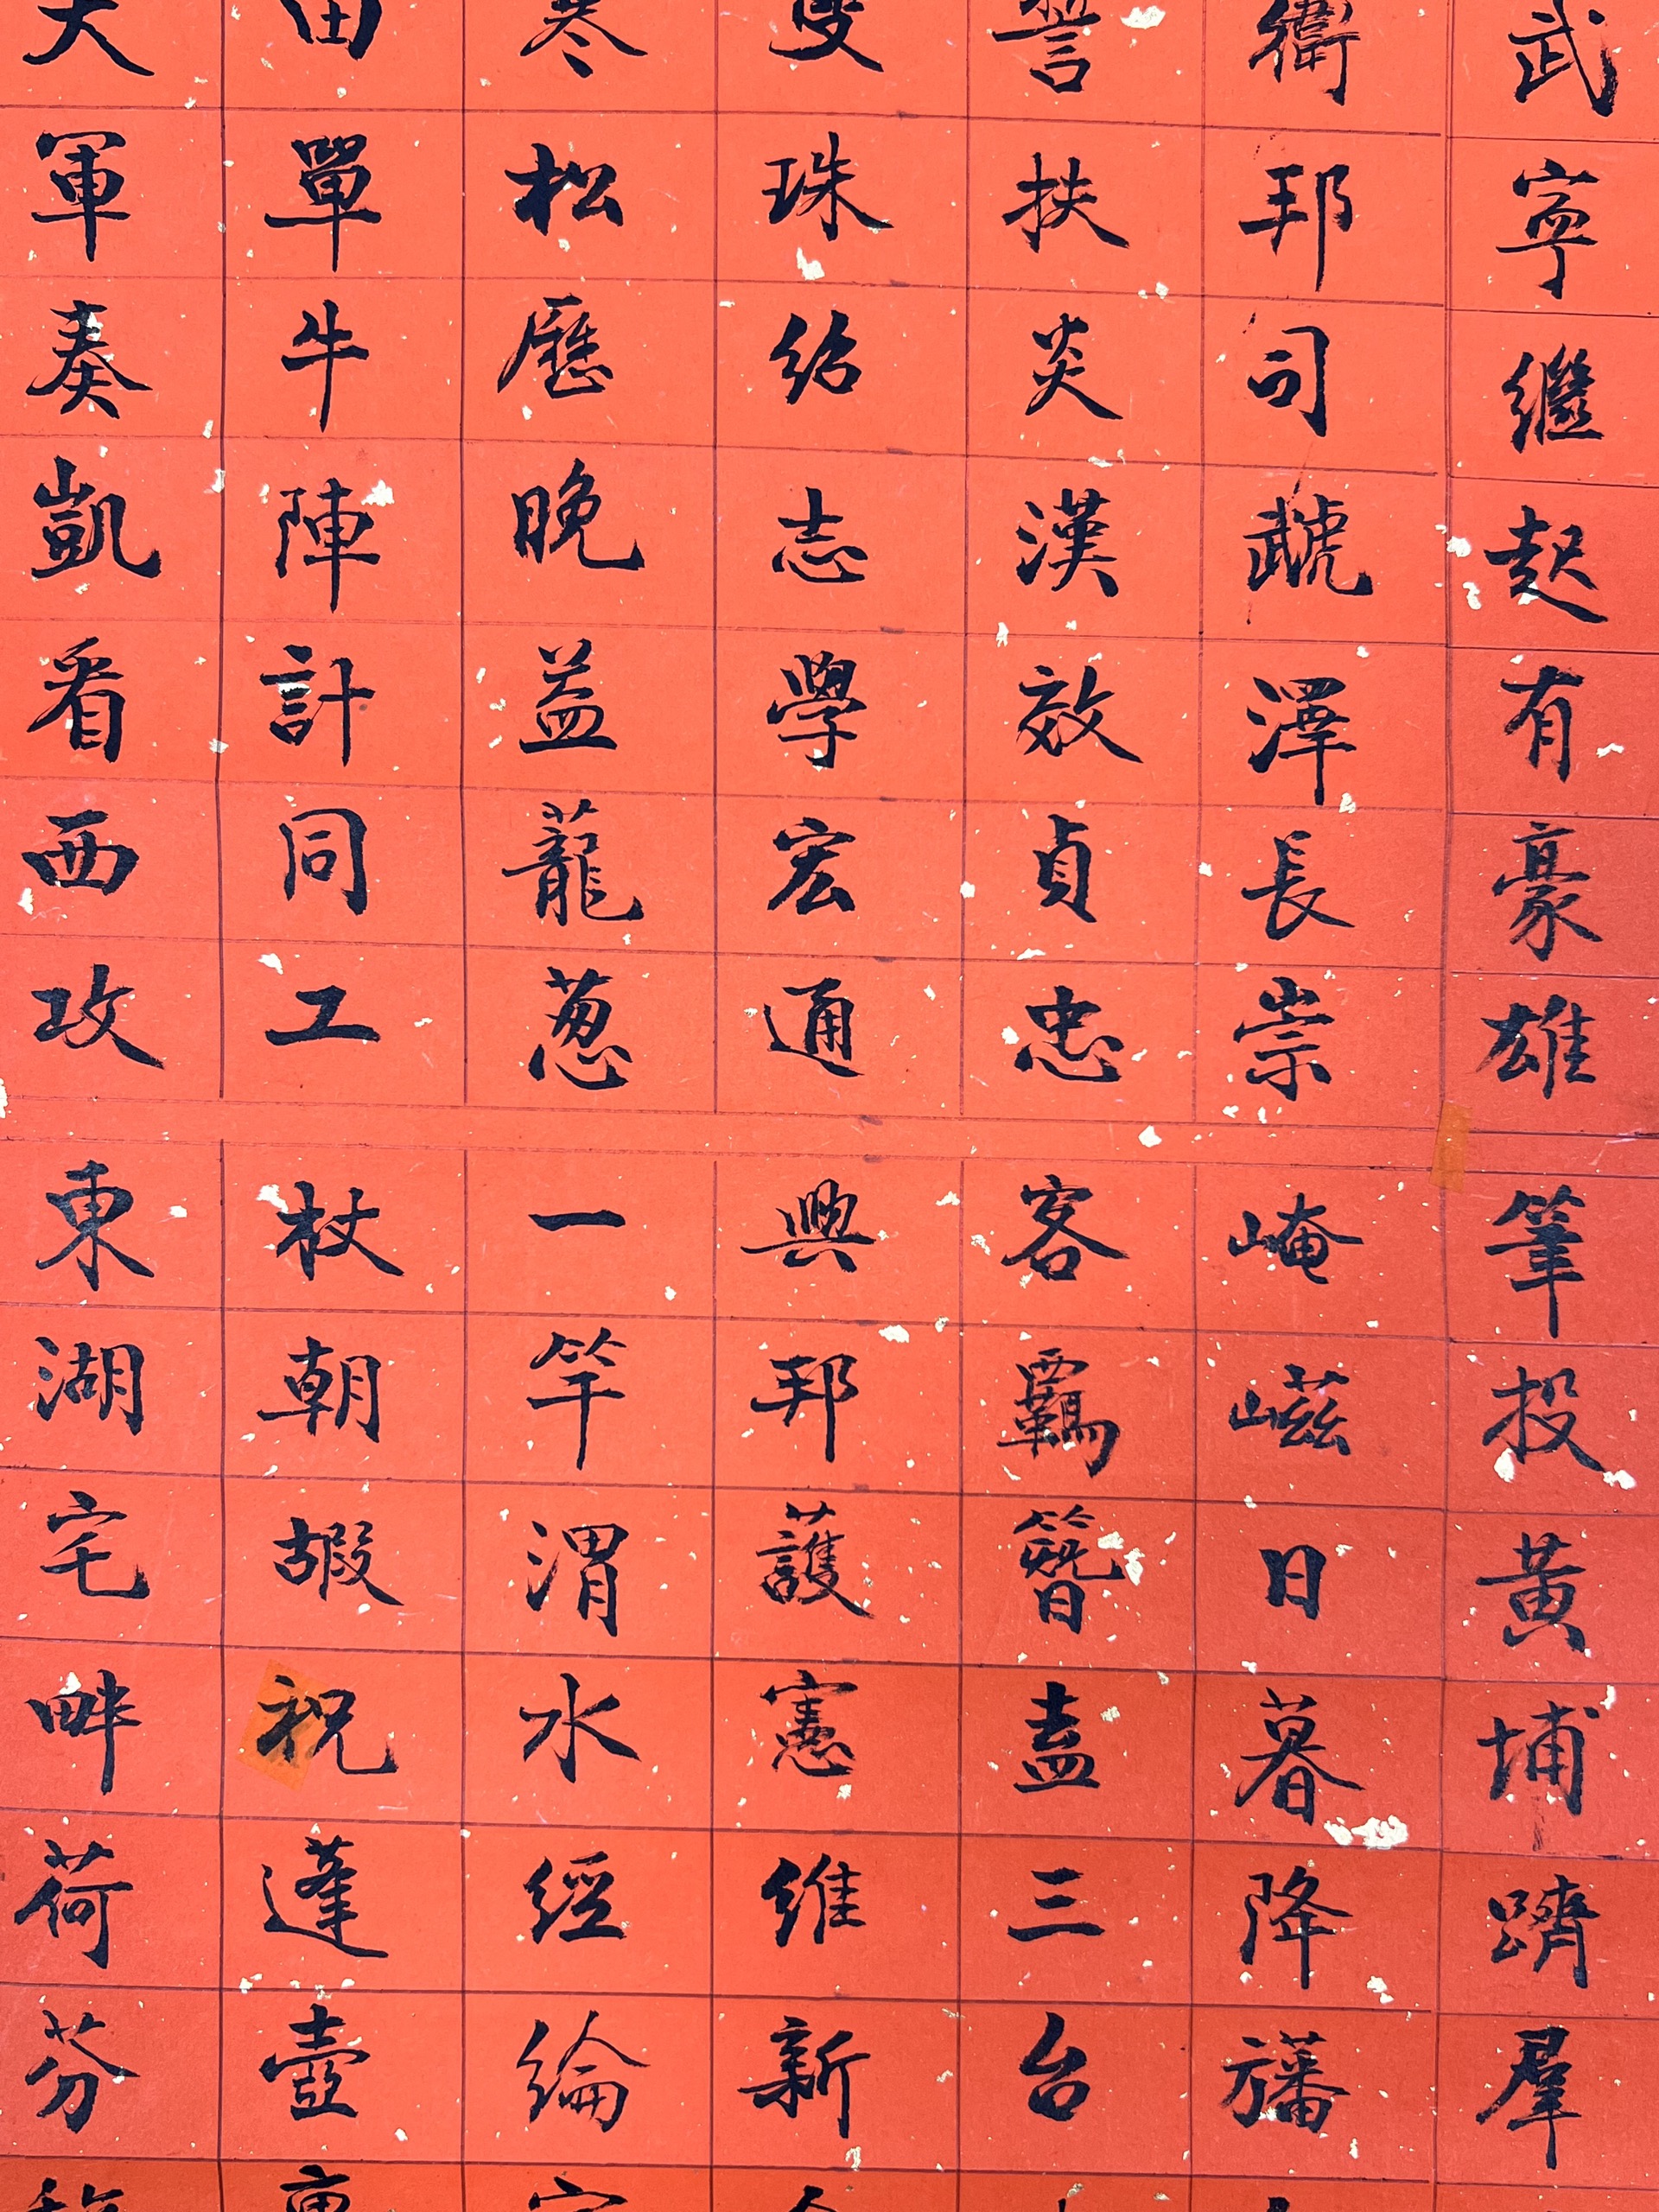 武寧繼起有豪雄
筆投黃埔躋羣
衛邦司虣澤長崇
崦嵫日暮降旛
誓扶炎漢效貞忠
客羈簪盍三台
雙珠紹志學宏通
興邦護憲維新
寒松歷晚益蘢葱
一竿渭水經綸
田單牛陣計同工
杖朝嘏祝蓬壺
大軍奏凱看西攻
東湖宅畔荷芬